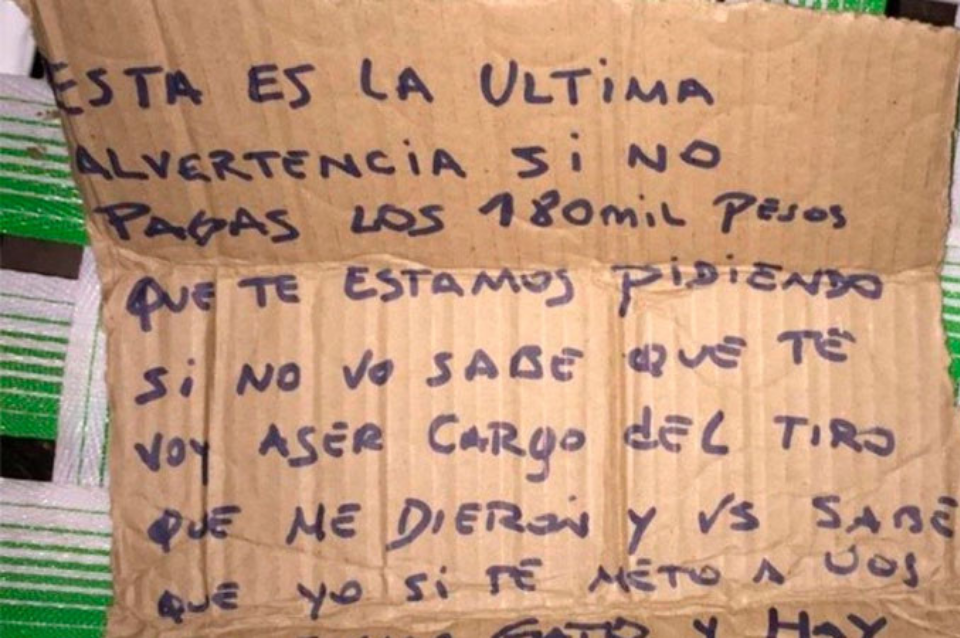 ESTA ES LA ULTIMA
ALVERTENCIA SI NO
PAGAS LOS 180MIL PESOS
QUE TE ESTAMOS PIDIENDO
SI NO VO SABE QUE TE
VOY ASER CARGO DEL TIRO
QUE ME DIERON Y VS SABE
QUE YO SI TE METO A VOS
GATO Y HAY